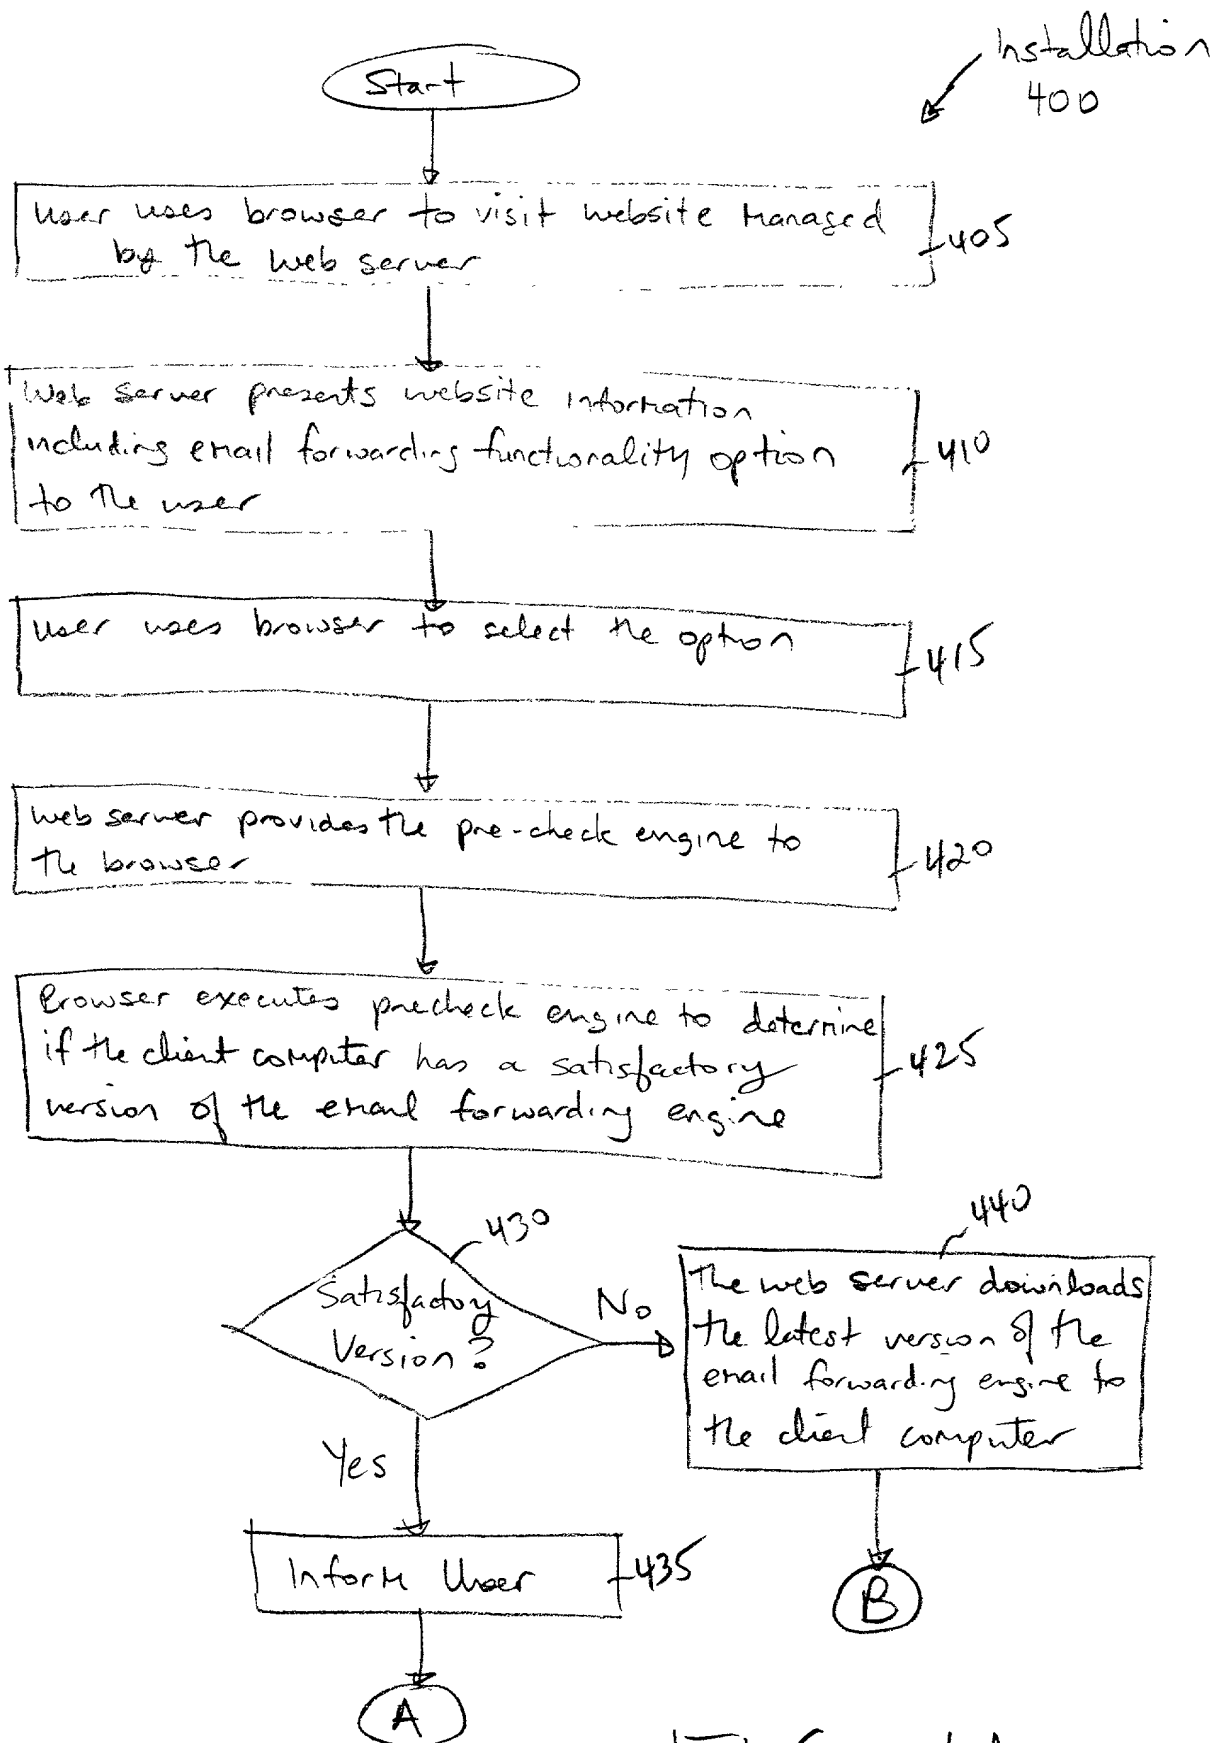 Installation
400
Start
User uses browser to visit website managed
by the web server
405
Web server presents website information
including email forwarding functionality option
to the user
410
User uses browser to select the option
415
web server provides the pre-check engine to
the browser
420
Browser executes precheck engine to determine
if the client computer has a satisfactory
version of the email forwarding engine
425
430
Satisfactory
Version?
No
440
The web server downloads
the latest version of the
email forwarding engine to
the client computer
Yes
Inform User
435
B
A